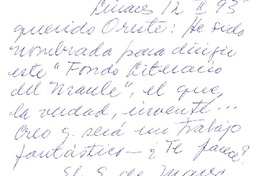 Linares 12 II 93
querido Oreste: He sido
nombrada para dirigir
este "Fondo Literario
del Maule", el que,
la verdad, inventé...
Creo q. será un trabajo
fantástico — ¿Te parece?
El 9 de Marzo